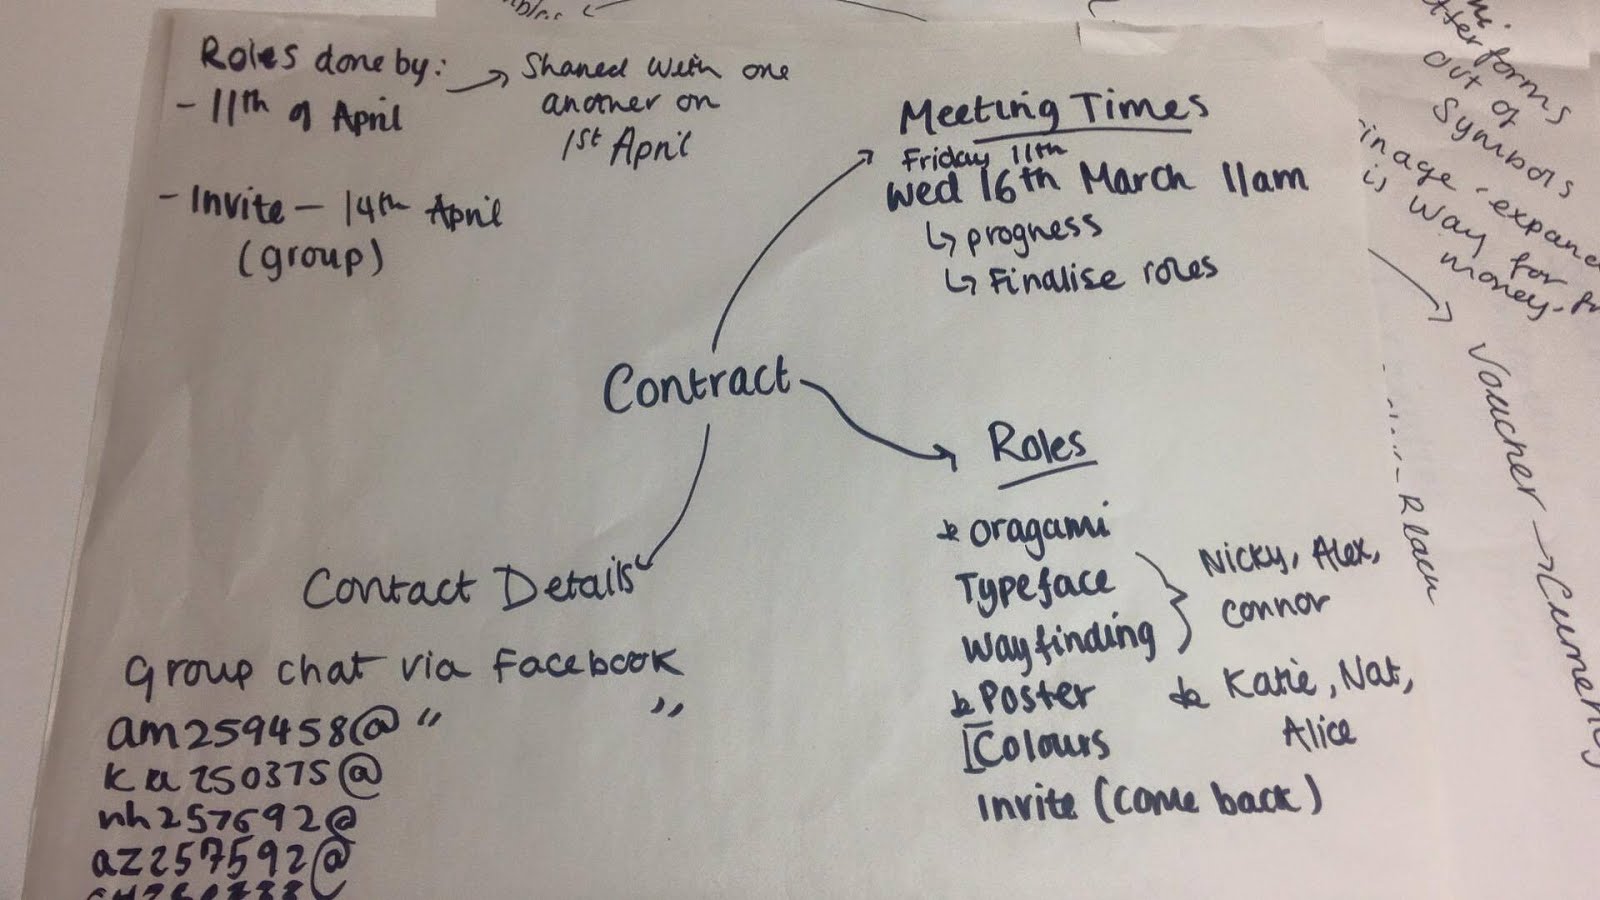 Roles done by:
- 11th of April
Shared with one
another on
1st April
- Invite - 14th April
(group)
Meeting Times
Friday 11th
Wed 16th March 11am
↳ progress
↳ Finalise roles
Contract
Roles
* Oragami
Typeface
Wayfinding
Nicky, Alex,
Connor
* Poster
* Katie, Nat,
Alice
[Colours
Invite (come back)
Contact Details
Group chat via Facebook
am259458@ " "
ka250375@
nh257692@
az257592@
out of
Symbols
is way for
money.
Voucher →